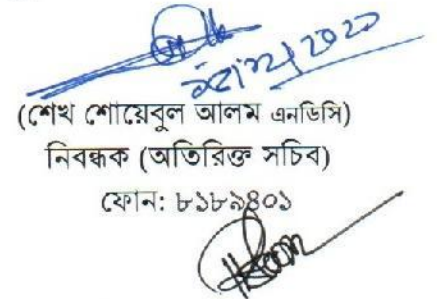 (শেখ শোয়েবুল আলম এনডিসি)
নিবন্ধক (অতিরিক্ত সচিব)
ফোন: ৮১৮৯৪০১